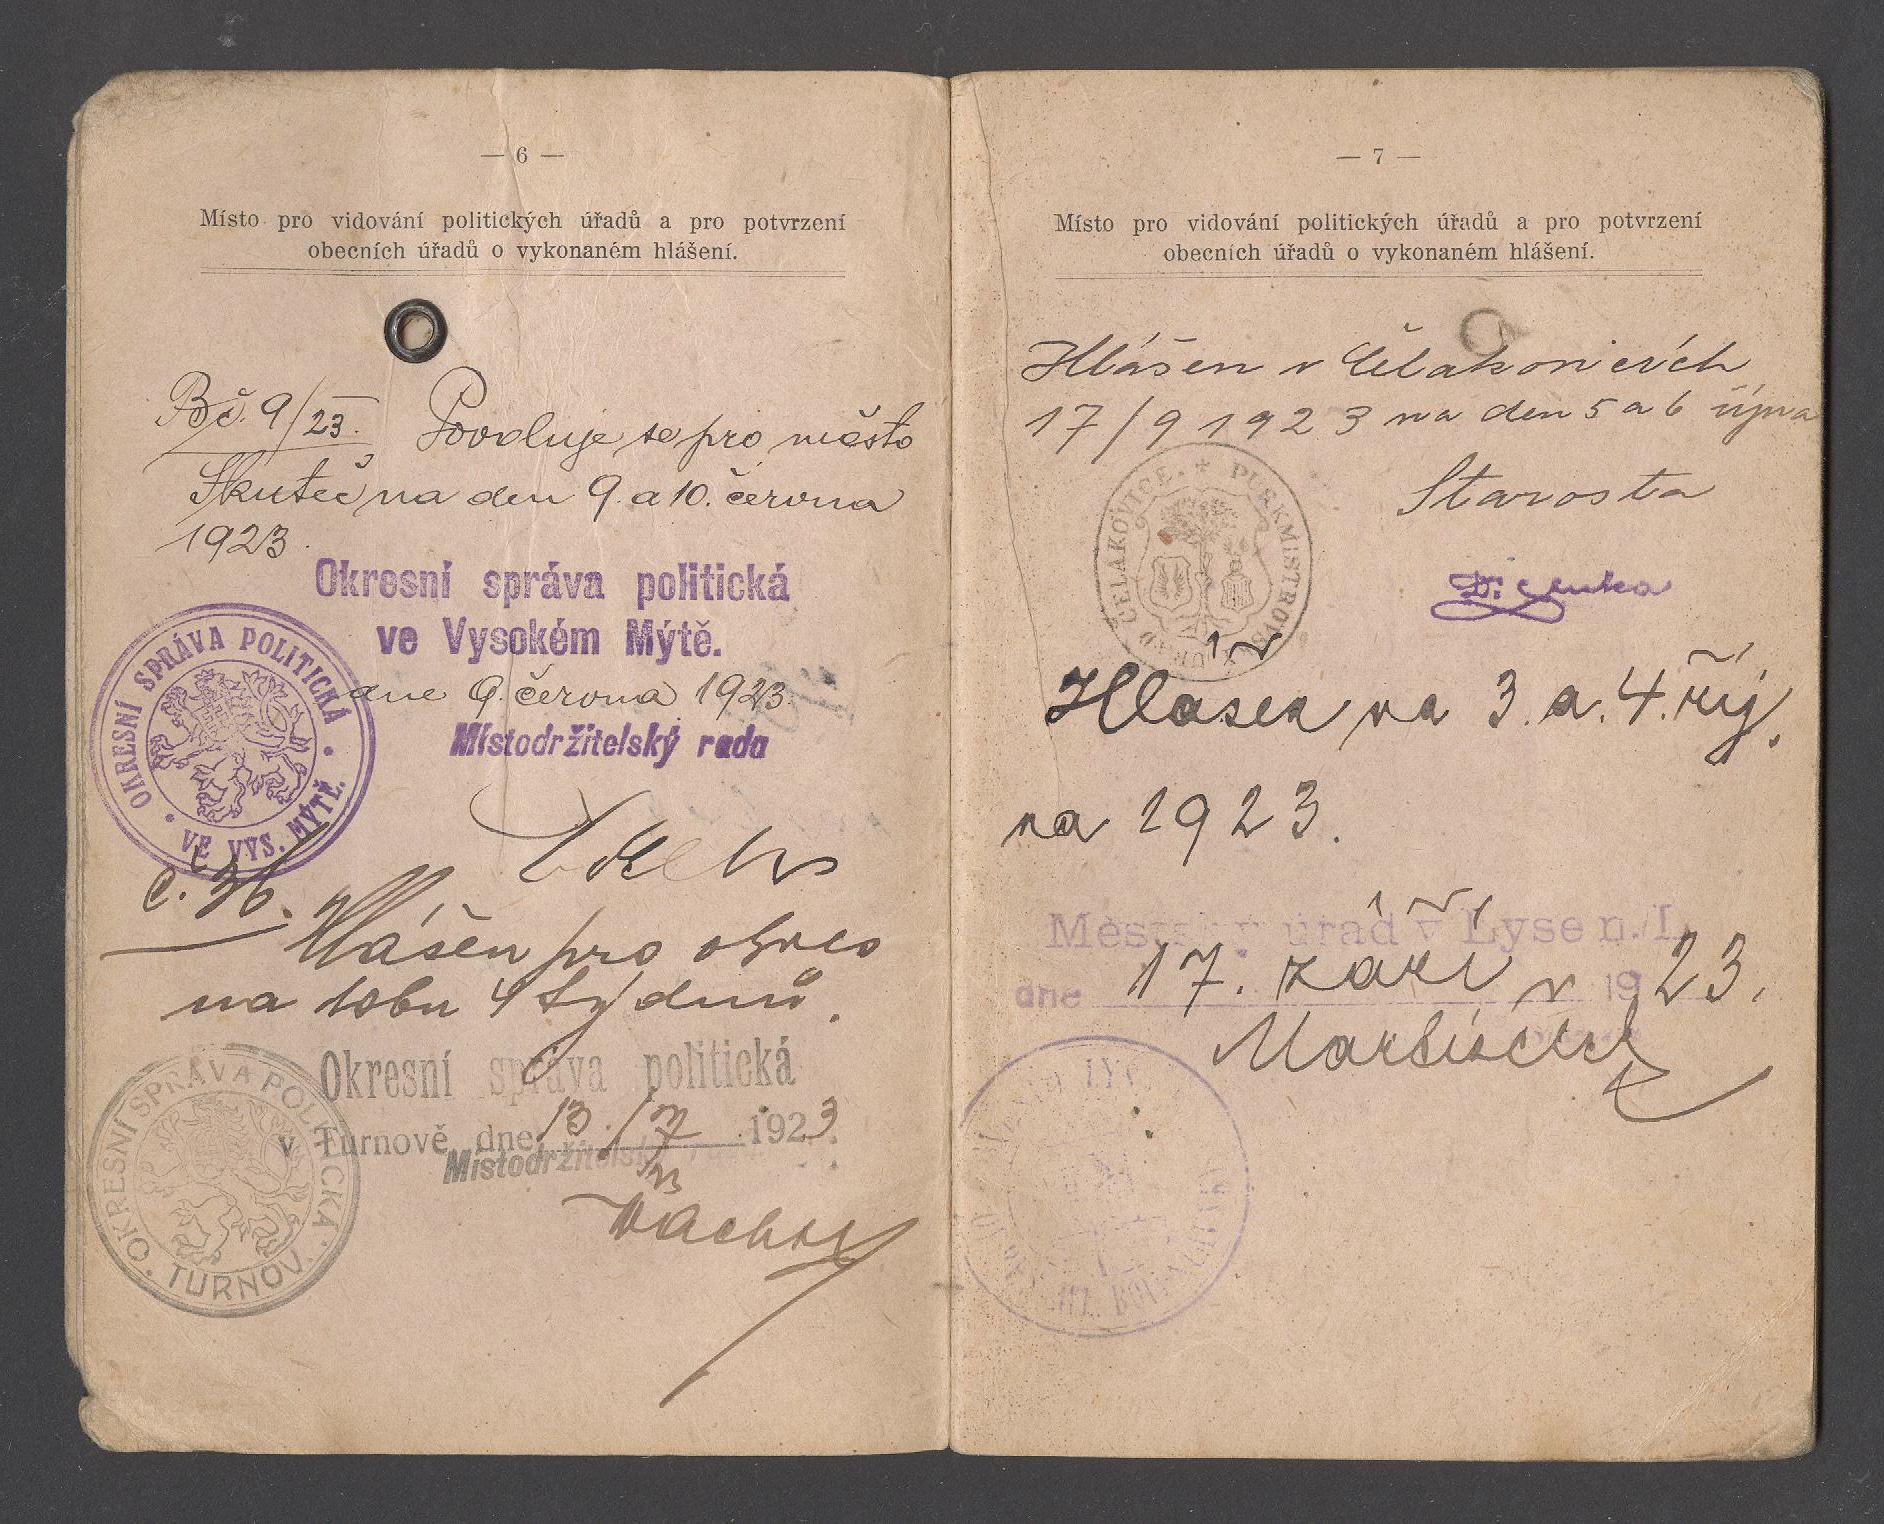 — 6 —
Místo pro vidování politických úřadů a pro potvrzení
obecních úřadů o vykonaném hlášení.
Bč. 9/23. Povoluje se pro město
Skuteč na den 9. a 10. června
1923.
Okresní správa politická
ve Vysokém Mýtě.
OKRESNÍ SPRÁVA POLITICKÁ
VE VYS. MÝTĚ.
dne 9. června 1923.
Místodržitelský rada
č. 36.
Hlášen pro okres
na dobu 4 týdnů.
Okresní správa politická
v Turnově dne 13./7 1923.
Místodržitelský
OKRESNÍ SPRÁVA POLITICKÁ
TURNOV.
— 7 —
Místo pro vidování politických úřadů a pro potvrzení
obecních úřadů o vykonaném hlášení.
Hlášen v Čelakovicích
17/9 1923 na den 5 a 6 října
PURKMISTROVSKÝ ÚŘAD ČELAKOVICE.
Starosta
Hlášen na 3. a. 4. říj.
na 1923.
Městský úřad v Lyse n./L.
dne 17. září 1923.